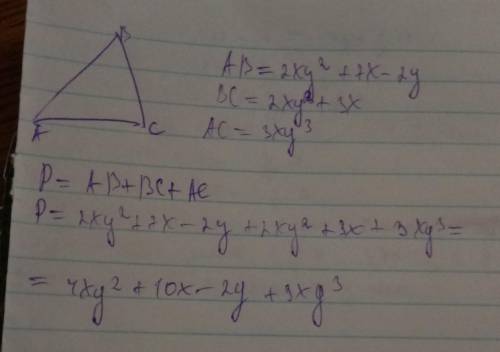 B
A
C
AB = 2xy² + 7x - 2y
BC = 2xy² + 3x
AC = 3xy³
P = AB + BC + AC
P = 2xy² + 7x - 2y + 2xy² + 3x + 3xy³ =
= 4xy² + 10x - 2y + 3xy³